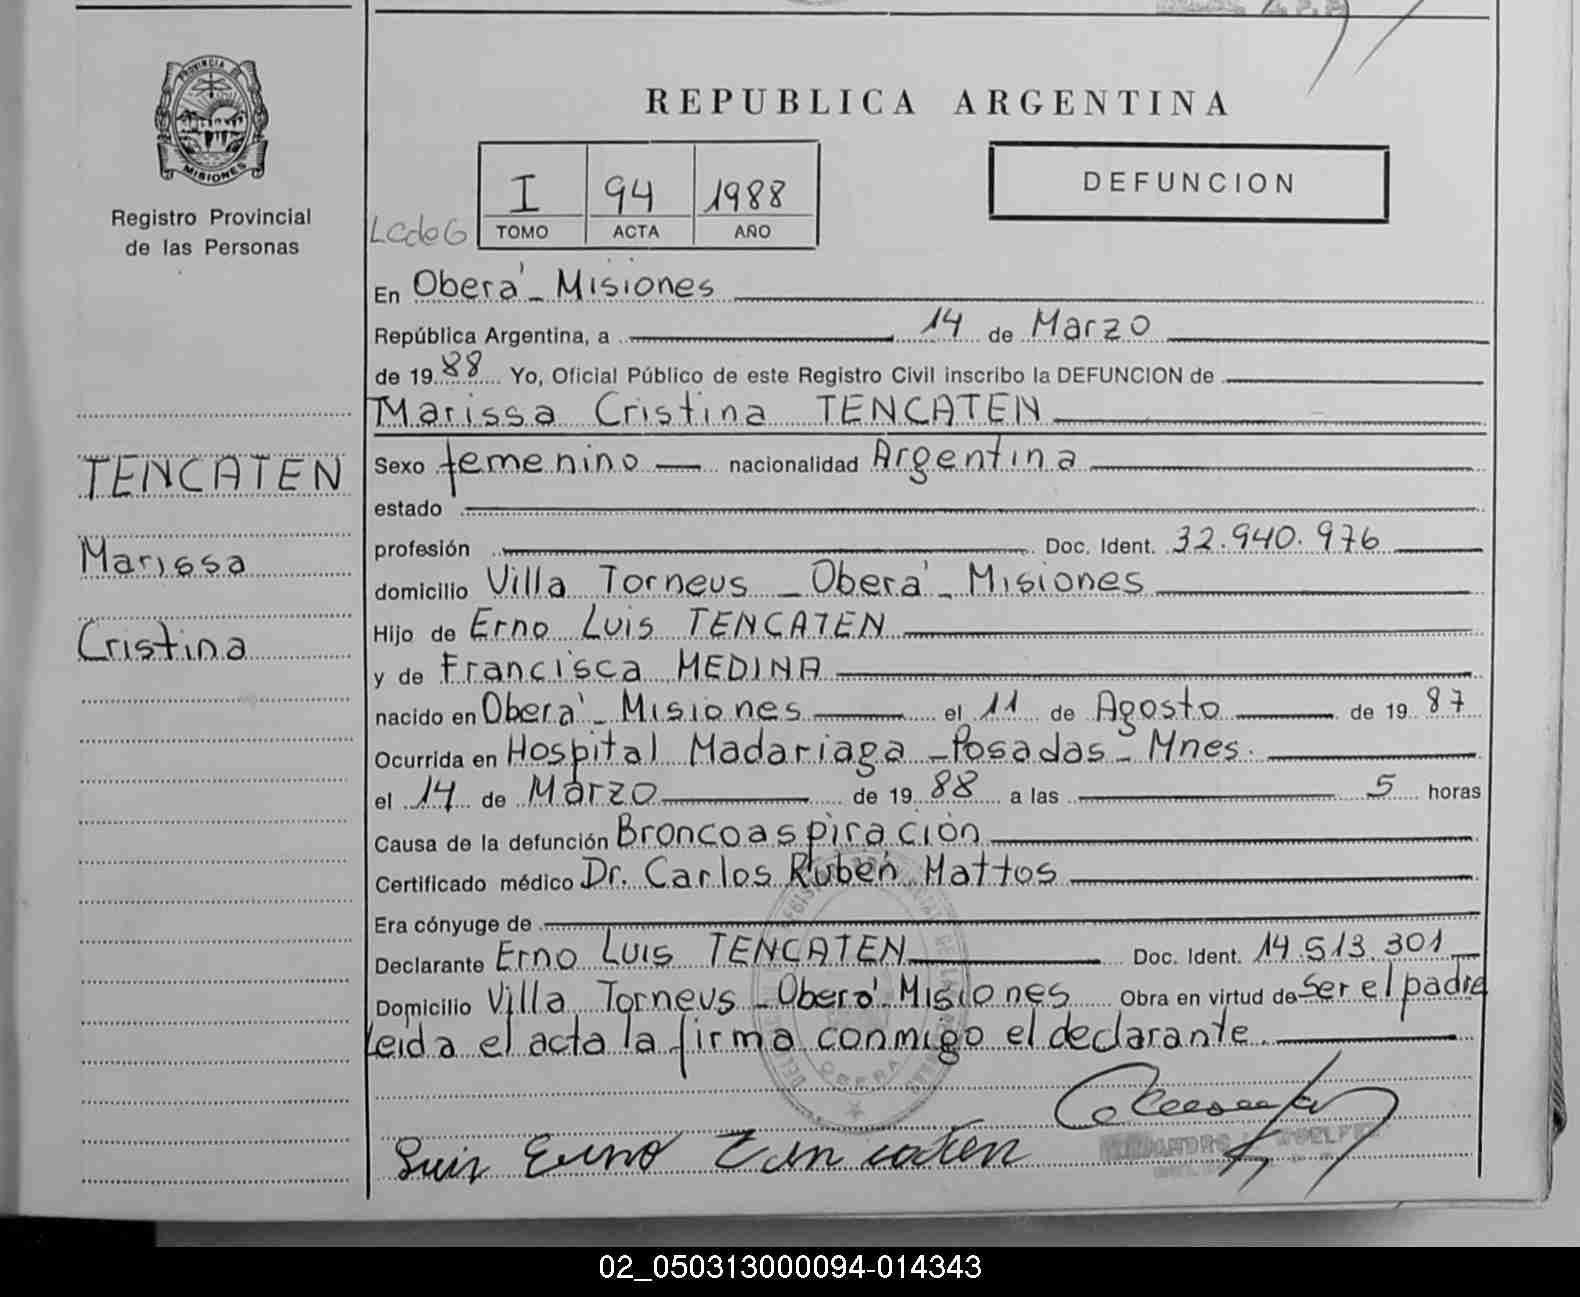 PROVINCIA DE
MISIONES
Registro Provincial
de las Personas
TENCATEN
Marissa
Cristina
REPUBLICA ARGENTINA
I 94 1988
TOMO ACTA AÑO
DEFUNCION
En Oberá - Misiones
República Argentina, a 14 de Marzo
de 1988 Yo, Oficial Público de este Registro Civil inscribo la DEFUNCION de
Marissa Cristina TENCATEN
Sexo femenino nacionalidad Argentina
estado
profesión Doc. Ident. 32.940.976
domicilio Villa Torneus - Oberá - Misiones
Hijo de Erno Luis TENCATEN
y de Francisca MEDINA
nacido en Oberá - Misiones el 11 de Agosto de 1987
Ocurrida en Hospital Madariaga - Posadas - Mnes.
el 14 de Marzo de 1988 a las 5 horas
Causa de la defunción Broncoaspiración
Certificado médico Dr. Carlos Rubén Mattos
Era cónyuge de
Declarante Erno Luis TENCATEN Doc. Ident. 14.513.301
Domicilio Villa Torneus - Oberá - Misiones Obra en virtud de Ser el padre
Leída el acta la firma conmigo el declarante.
OBERA
Luis Erno Tencaten
02_050313000094-014343